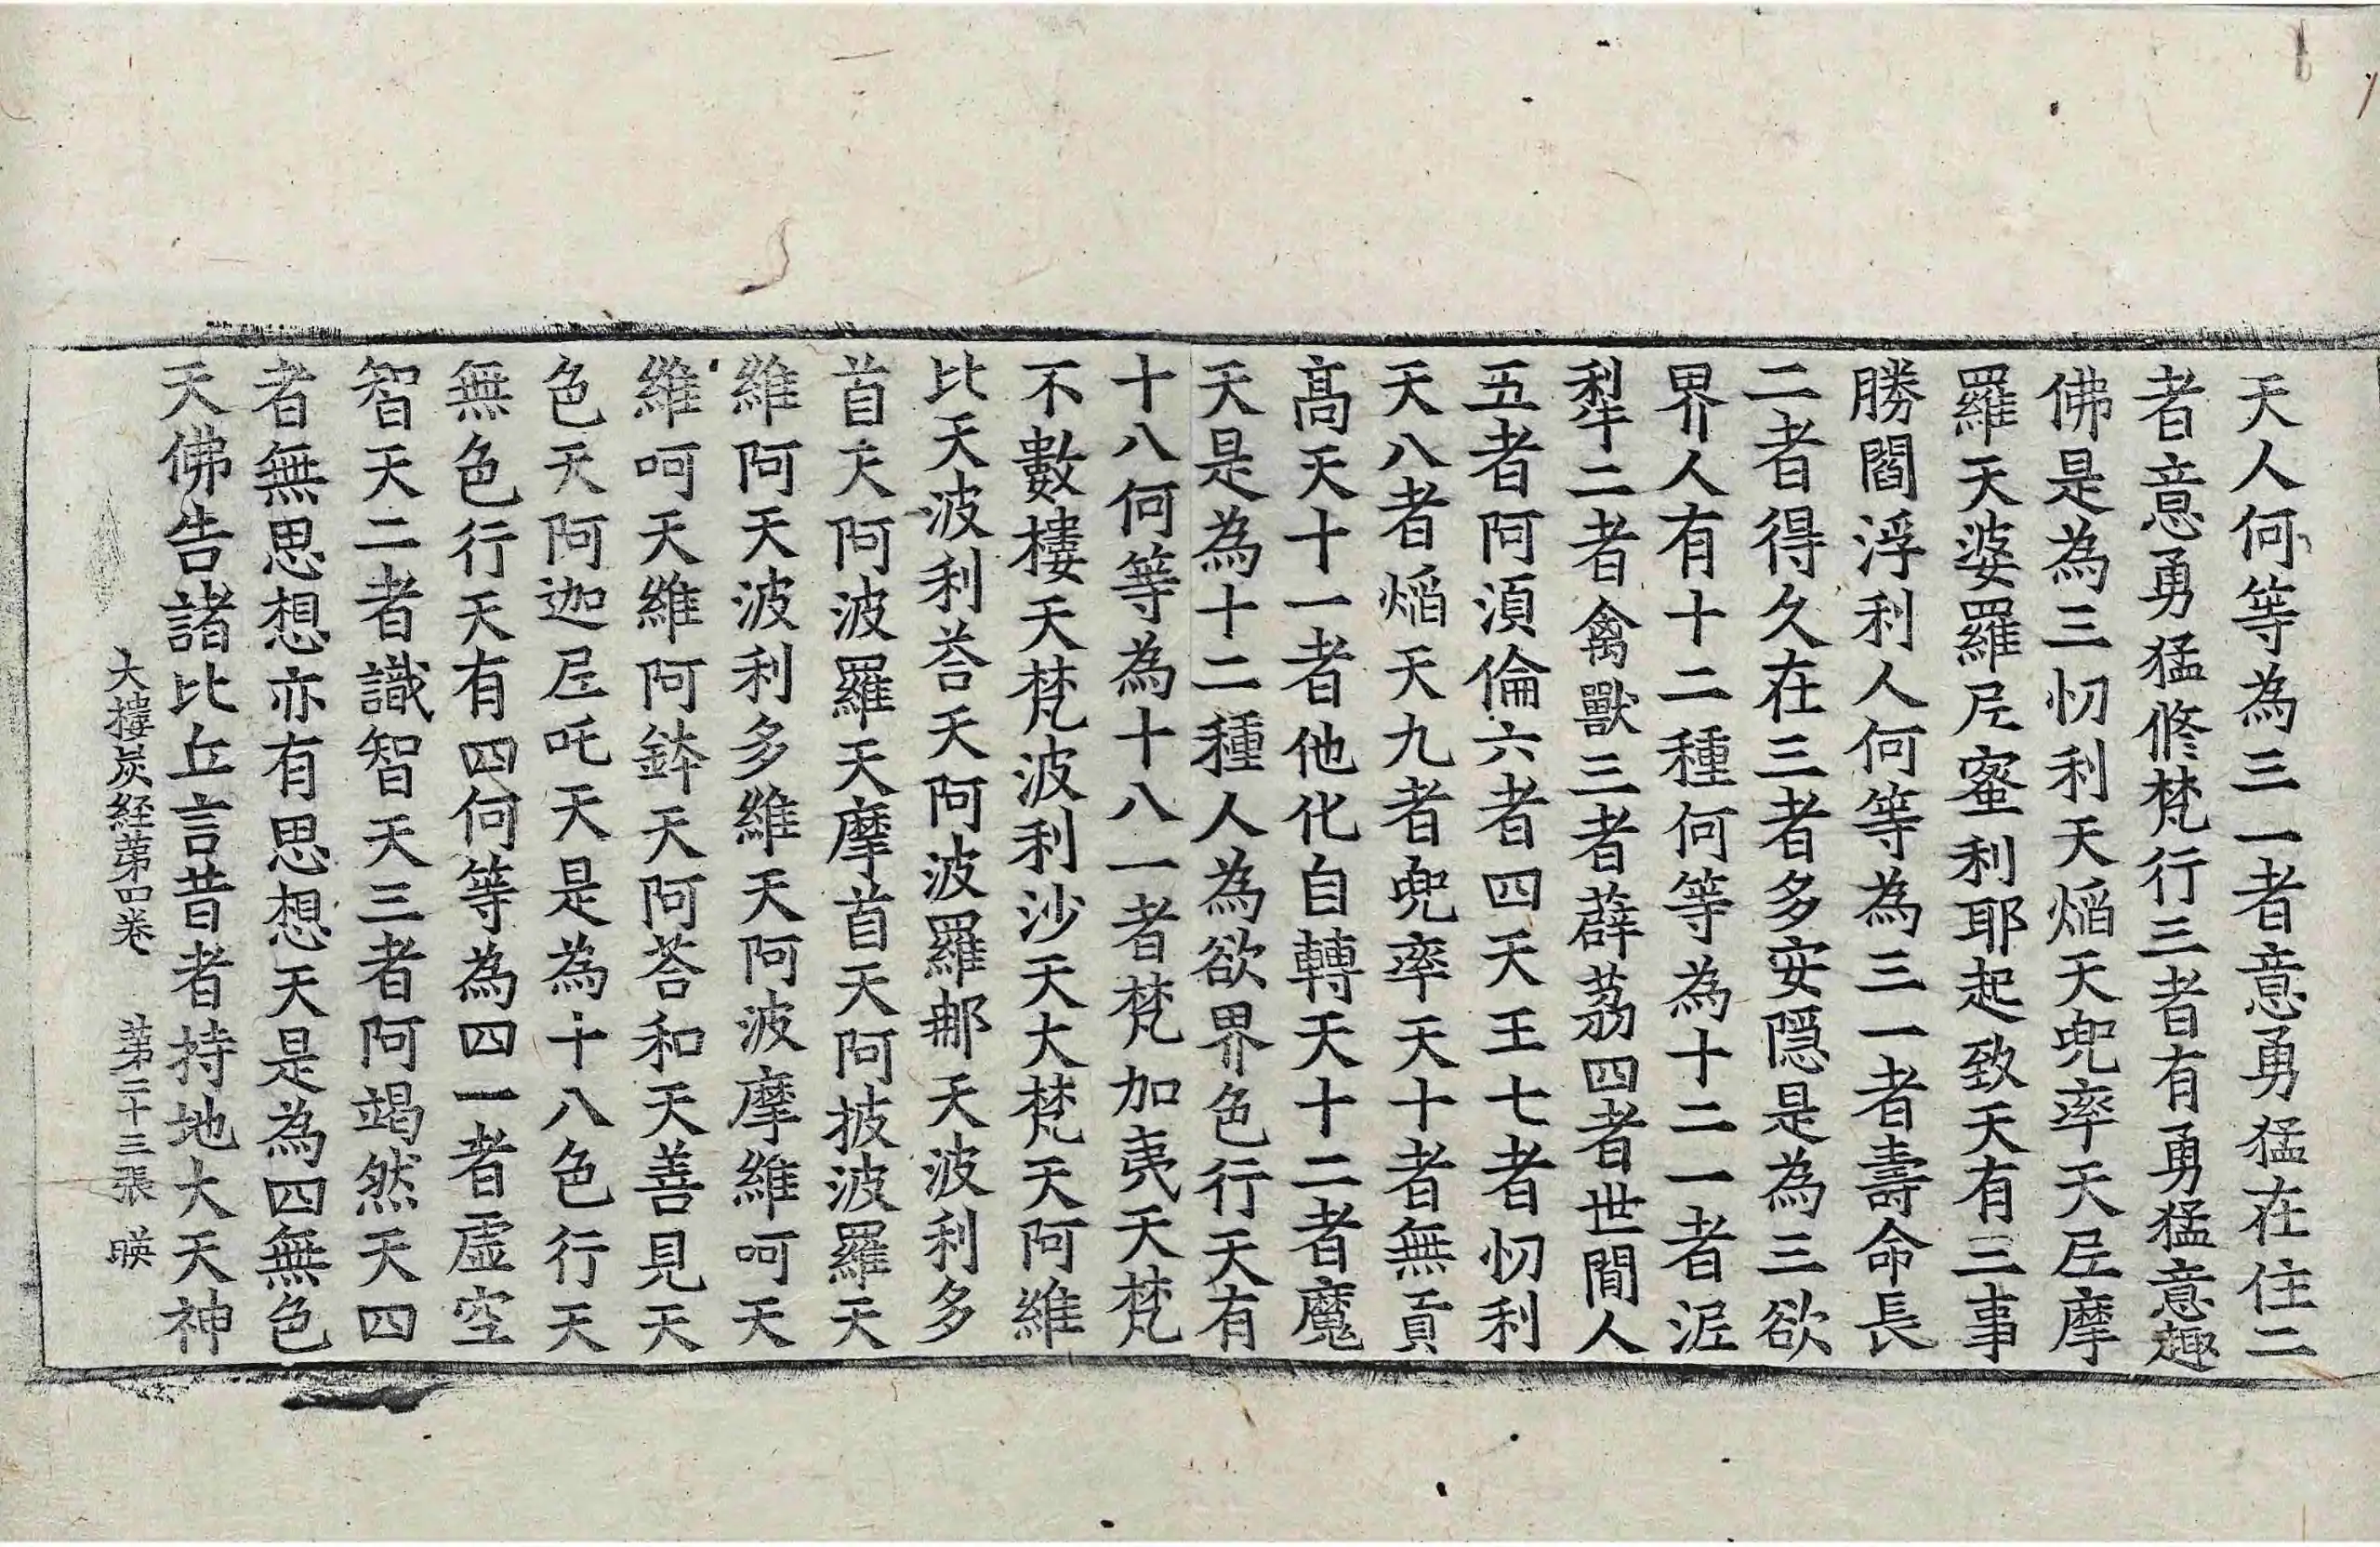 天人何等為三一者意勇猛在住二
者意勇猛脩梵行三者有勇猛意趣
佛是為三忉利天焰天兠率天𡰱摩
羅天婆羅𡰱蜜利耶起致天有三事
勝閻浮利人何等為三一者壽命長
二者得久在三者多安隠是為三欲
界人有十二種何等為十二一者泥
犁二者禽獸三者薜荔四者世閒人
五者阿湏倫六者四天王七者忉利
天八者焰天九者兠率天十者無貢
髙天十一者他化自轉天十二者魔
天是為十二種人為欲界色行天有
十八何等為十八一者梵加夷天梵
不數樓天梵波利沙天大梵天阿維
比天波利荅天阿波羅那天波利多
首天阿波羅天摩首天阿披波羅天
維阿天波利多維天阿波摩維呵天
維呵天維阿鉢天阿荅和天善見天
色天阿迦𡰱吒天是為十八色行天
無色行天有四何等為四一者虛空
智天二者識智天三者阿竭然天四
者無思想亦有思想天是為四無色
天佛告諸比丘言昔者持地大天神
大樓炭経苐四卷 苐二十三張 暎